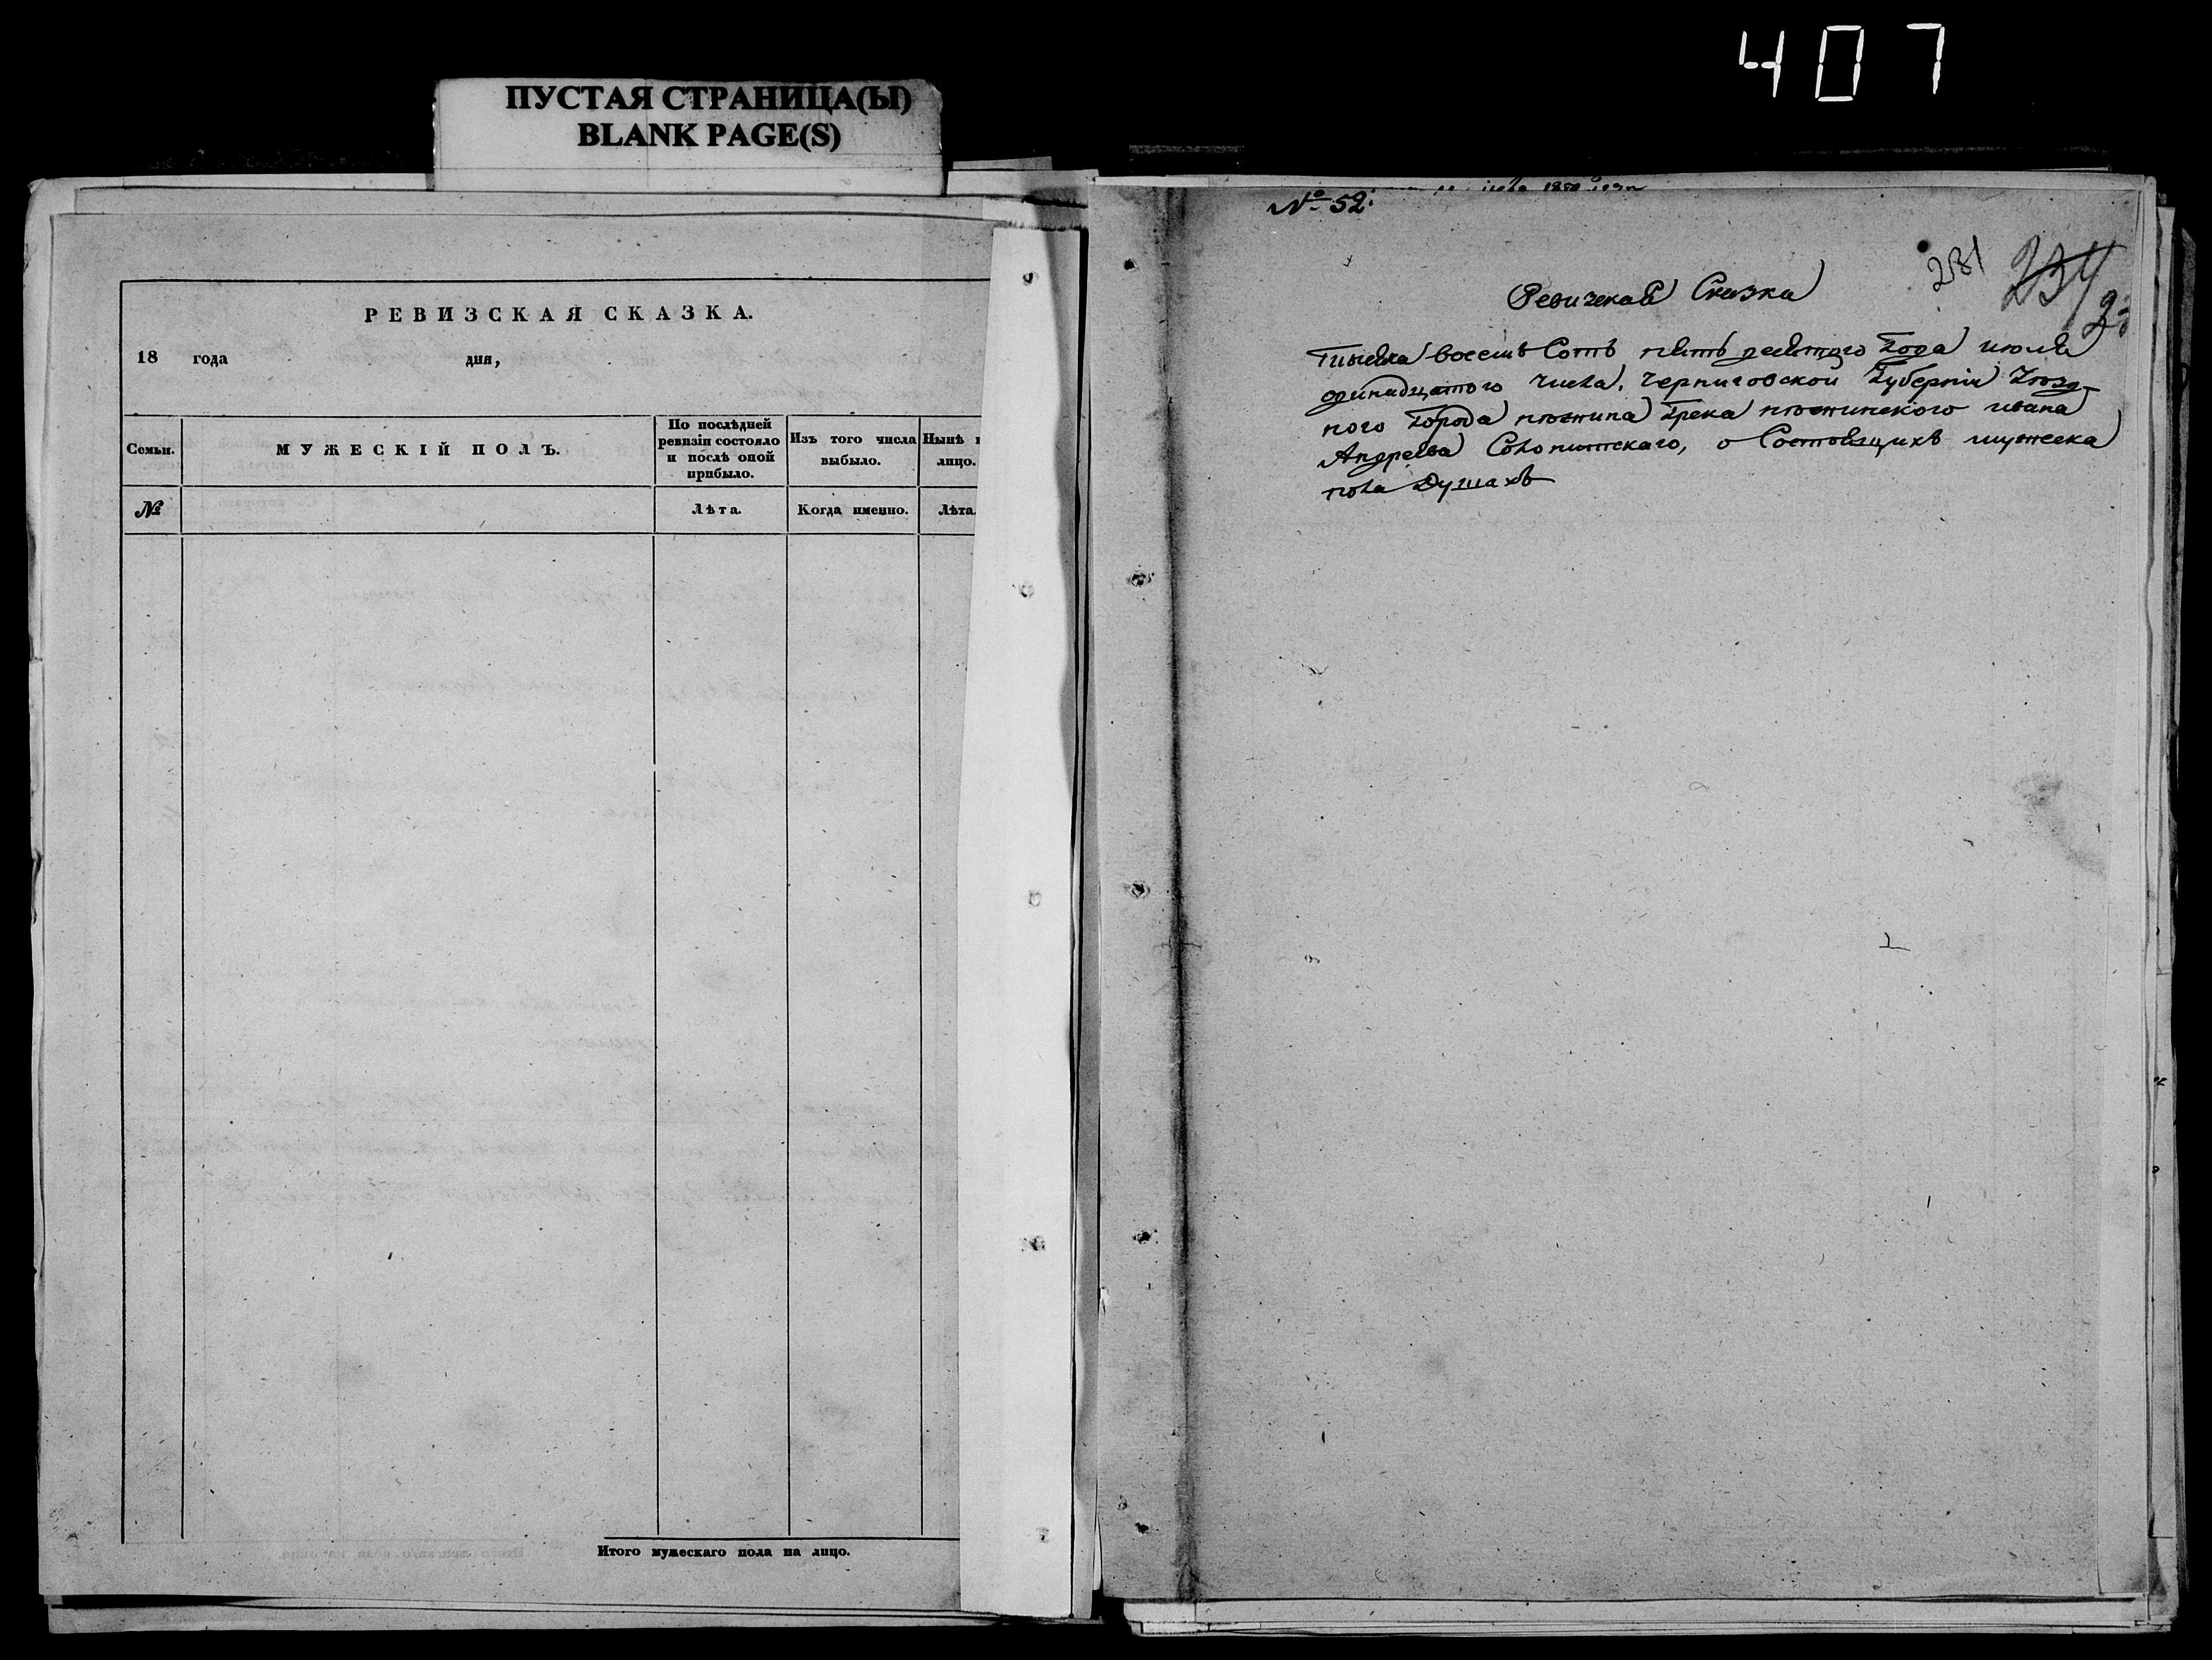 407
ПУСТАЯ СТРАНИЦА(Ы)
BLANK PAGE(S)
РЕВИЗСКАЯ СКАЗКА.
18 года дня,
Семьи.
МУЖЕСКІЙ ПОЛЪ.
По послѣдней
ревизіи состояло
и послѣ оной
прибыло.
Изъ того числа
выбыло.
Нынѣ
лицо.
№
Лѣта.
Когда именно.
Лѣта.
Итого мужескаго пола на лицо.
№ 52.
231
234
Ревизская Сказка
Тысяча восемь Сотъ пять десятого Года июля
одинадцатого числа, Черниговской Губерніи Уѣзд-
ного Города нѣжина Грека нѣжинского ивана
Андреева, о Состоящихъ мужеска
пола Душахъ